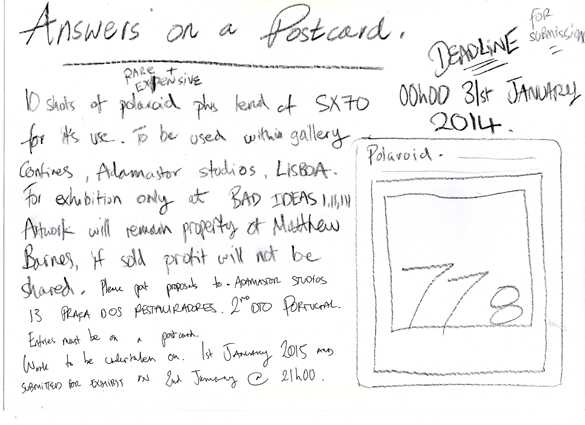 Answers on a Postcard.
FOR
SUBMISSION
DEADLINE
00h00 31st JANUARY
2014.
RARE +
EXPENSIVE
10 shots of polaroid plus lend of SX70
for it's use. To be used within gallery
confines, Adamastor studios, LISBOA.
For exhibition only at BAD IDEAS I,II,III
Artwork will remain property of Matthew
Barnes, if sold profit will not be
shared. Please post proposals to - ADAMASTOR STUDIOS
13 PRAÇA DOS RESTAURADORES. 2ND DTO PORTUGAL.
Entries must be on a postcard.
Work to be undertaken on. 1st January 2015 and
SUBMITTED FOR EXHIBIT ON 2nd January @ 21h00.
Polaroid -
778